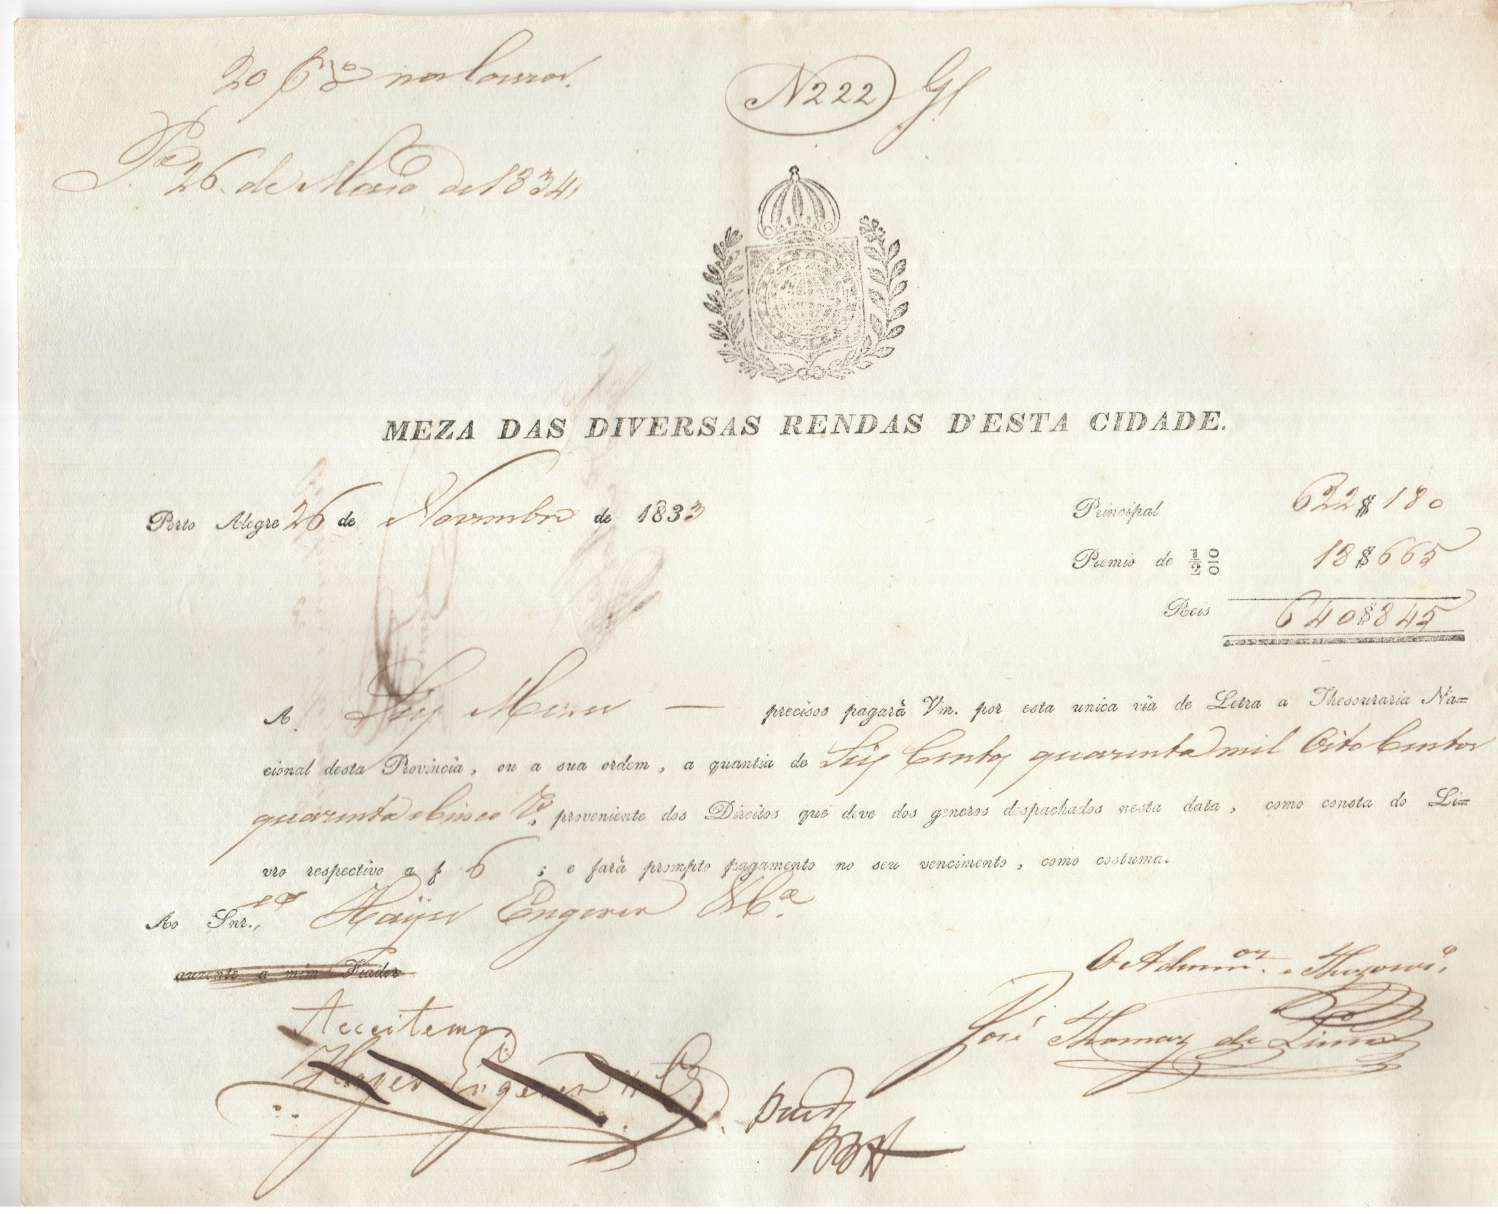 N 222
P.ª 26 de Maio de 1834
MEZA DAS DIVERSAS RENDAS D'ESTA CIDADE.
Porto Alegre 26 de Novembro de 1833
Principal 622$180
Premio de ½ 0/0 18$665
Reis 640$845
A Seis Mezes — precisos pagarà Vm. por esta unica via de Letra a Thesouraria Na=
cional desta Provincia, ou a sua ordem, a quantia de Seis Centos quarenta mil Oito Centos
quarenta e Cinco R.s proveniente dos Direitos que deve dos generos despachados nesta data, como consta do Li=
vro respectivo a f 6 ; e farà prompto pagamento no seu vencimento, como costuma.
Ao Snr.es Haÿser Engerer & C.ª
auzente a mim Fiador
O Adm.or e Thezour.o
Acceitemos
José Thomaz de Lima
Hayser Engerer & C.